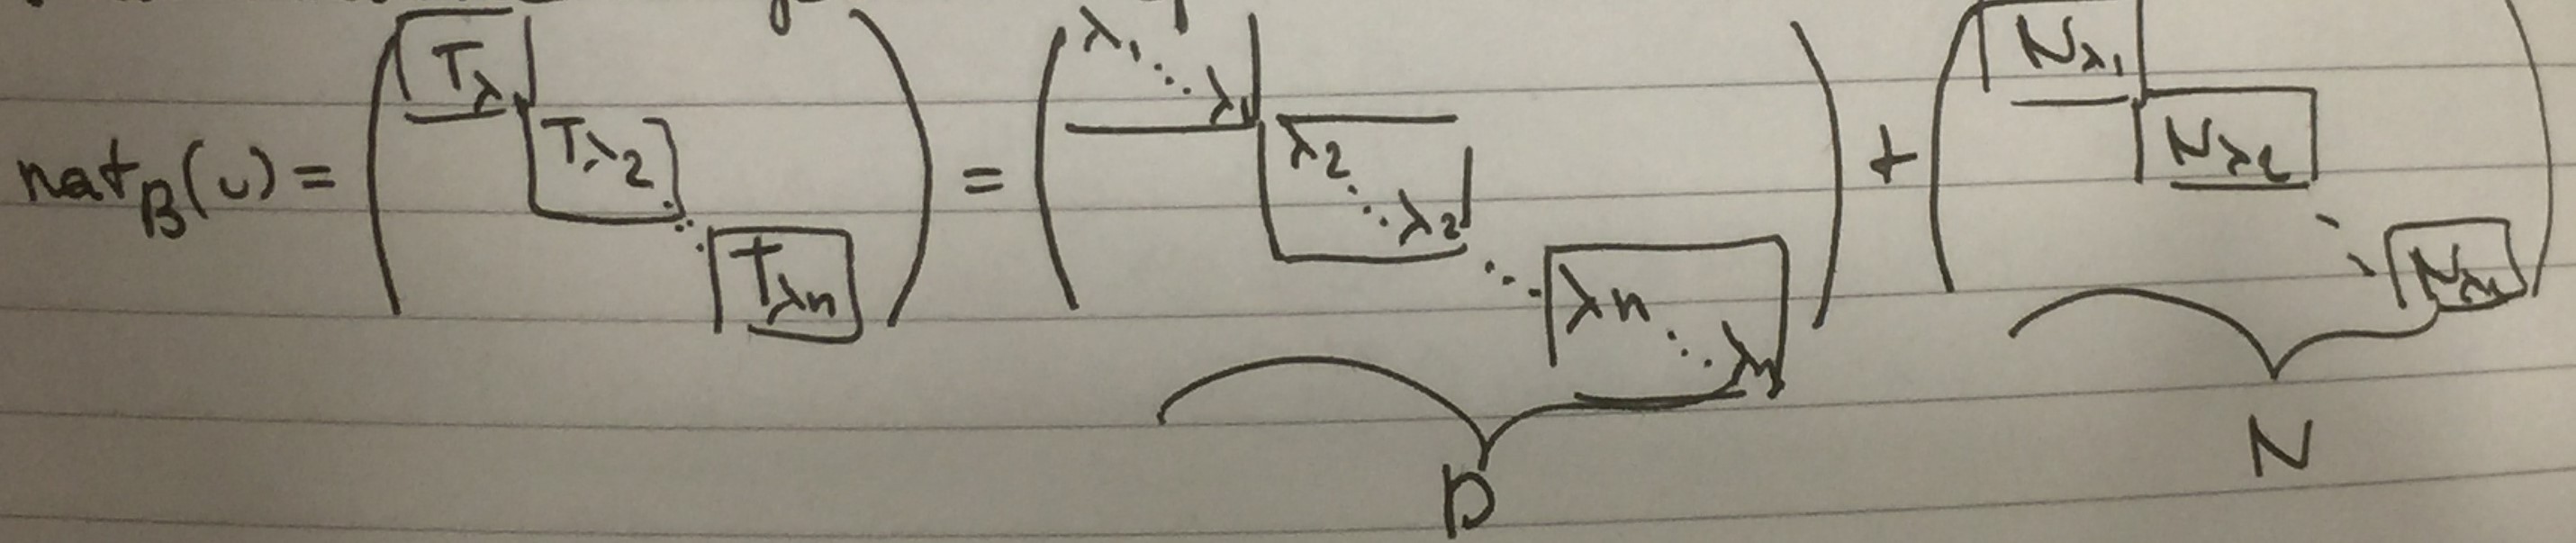 nat_B(u) = ( T_λ1 T_λ2 ⋱ T_λn ) = ( λ1 ⋱ λ1 λ2 ⋱ λ2 ⋱ λn ⋱ λn ) + ( N_λ1 N_λ2 ⋱ N_λn )
D N